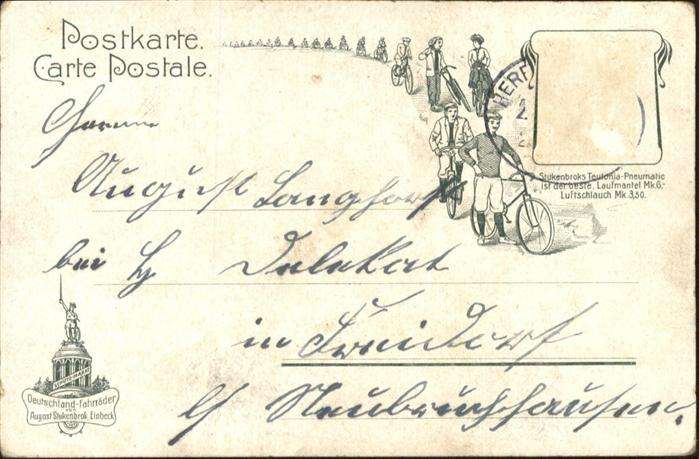 Postkarte.
Carte Postale.
HERF
Herrn
August Langhorst
Stukenbroks Teutonia-Pneumatic
ist der beste. Laufmantel Mk.6,-
Luftschlauch Mk.3,50.
bei H Delekat
in Freidorf
b/ Neubruchhausen.
Deutschland-Fahrräder
von
August Stukenbrok, Einbeck